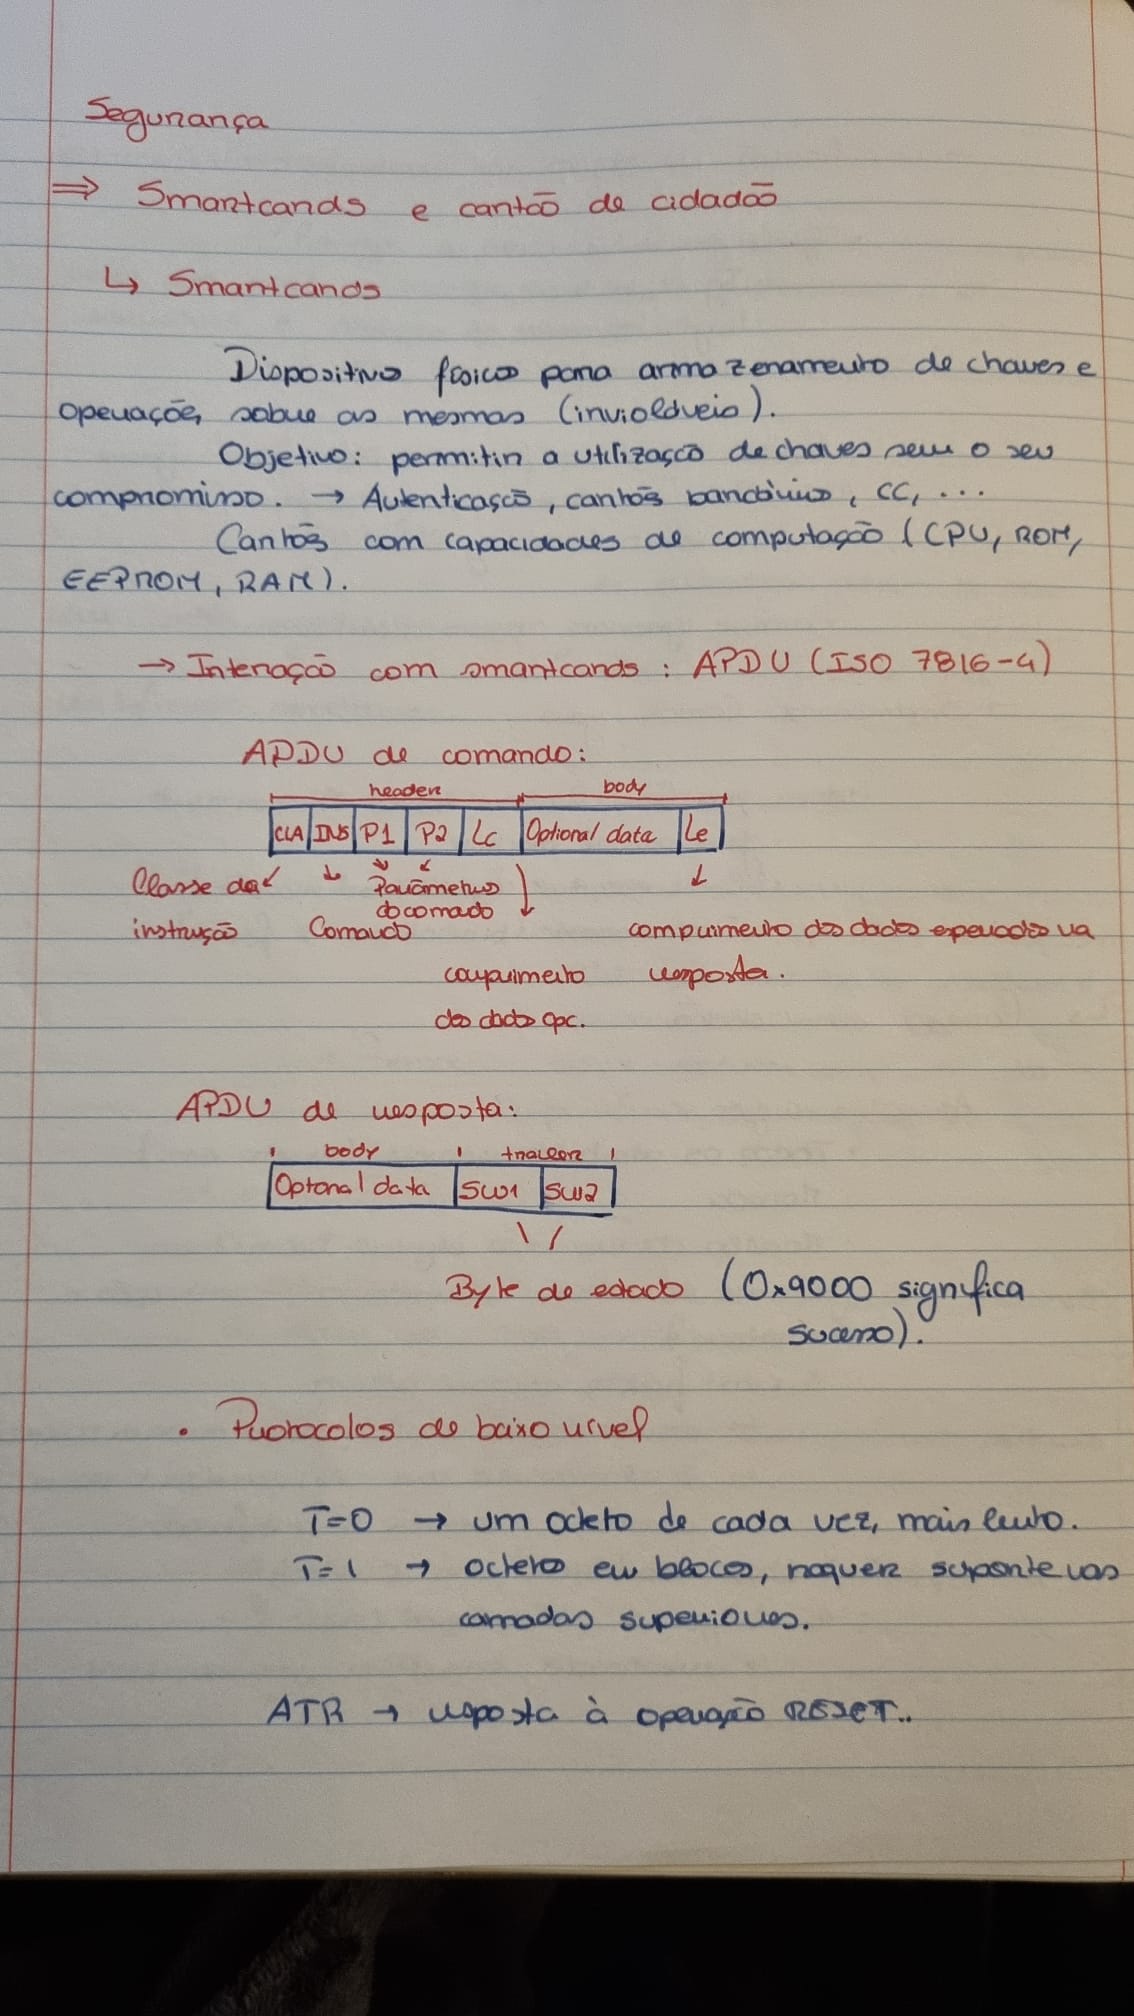 Segurança
⇒ Smartcards e cartão de cidadão
↳ Smartcards
Dispositivo físico para armazenamento de chaves e
operações sobre as mesmas (invioláveis).
Objetivo: permitir a utilização de chaves sem o seu
compromisso. → Autenticação, cartões bancários, CC, ...
Cartões com capacidades de computação (CPU, ROM,
EEPROM, RAM).
→ Interação com smartcards: APDU (ISO 7816-4)
APDU de comando:
header body
CLA INS P1 P2 Lc Optional data Le
Classe da Parâmetros
do comado
instrução Comando comprimento dos dados esperados na
comprimento resposta.
dos dados opc.
APDU de resposta:
body trailer
Optonal data SW1 SW2
Byte de estado (0x9000 significa
sucesso).
• Protocolos de baixo nível
T=0 → um octeto de cada vez, mais lento.
T=1 → octetos em blocos, requer suporte nas
camadas superiores.
ATR → resposta à operação RESET..